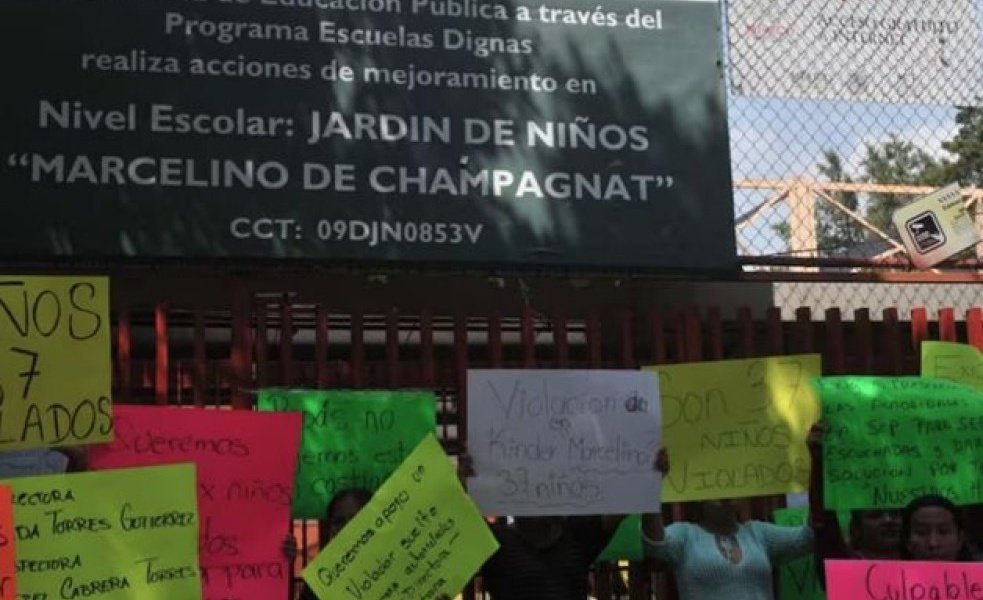 de Educación Pública a través del
Programa Escuelas Dignas
realiza acciones de mejoramiento en
Nivel Escolar: JARDIN DE NIÑOS
“MARCELINO DE CHAMPAGNAT”
CCT: 09DJN0853V
ACCESO GRATUITO
A INTERNET
ÑOS
7
LADOS
Queremos
x niños
dos
para
ECTORA
DA TORRES GUTIERREZ
SPECTORA
EL CABRERA TORRES
no
Queremos apoyo
Violador suelto
autoridades
Directora
Violación de
en
Kinder Marcelino
37 niños
Son 37
NIÑOS
VIOLADOS
LAS AUTORIDA
SEP PARA SER
ESCUCHADAS Y DAR
SOLUCION POR
NUESTROS
EXI
Culpable